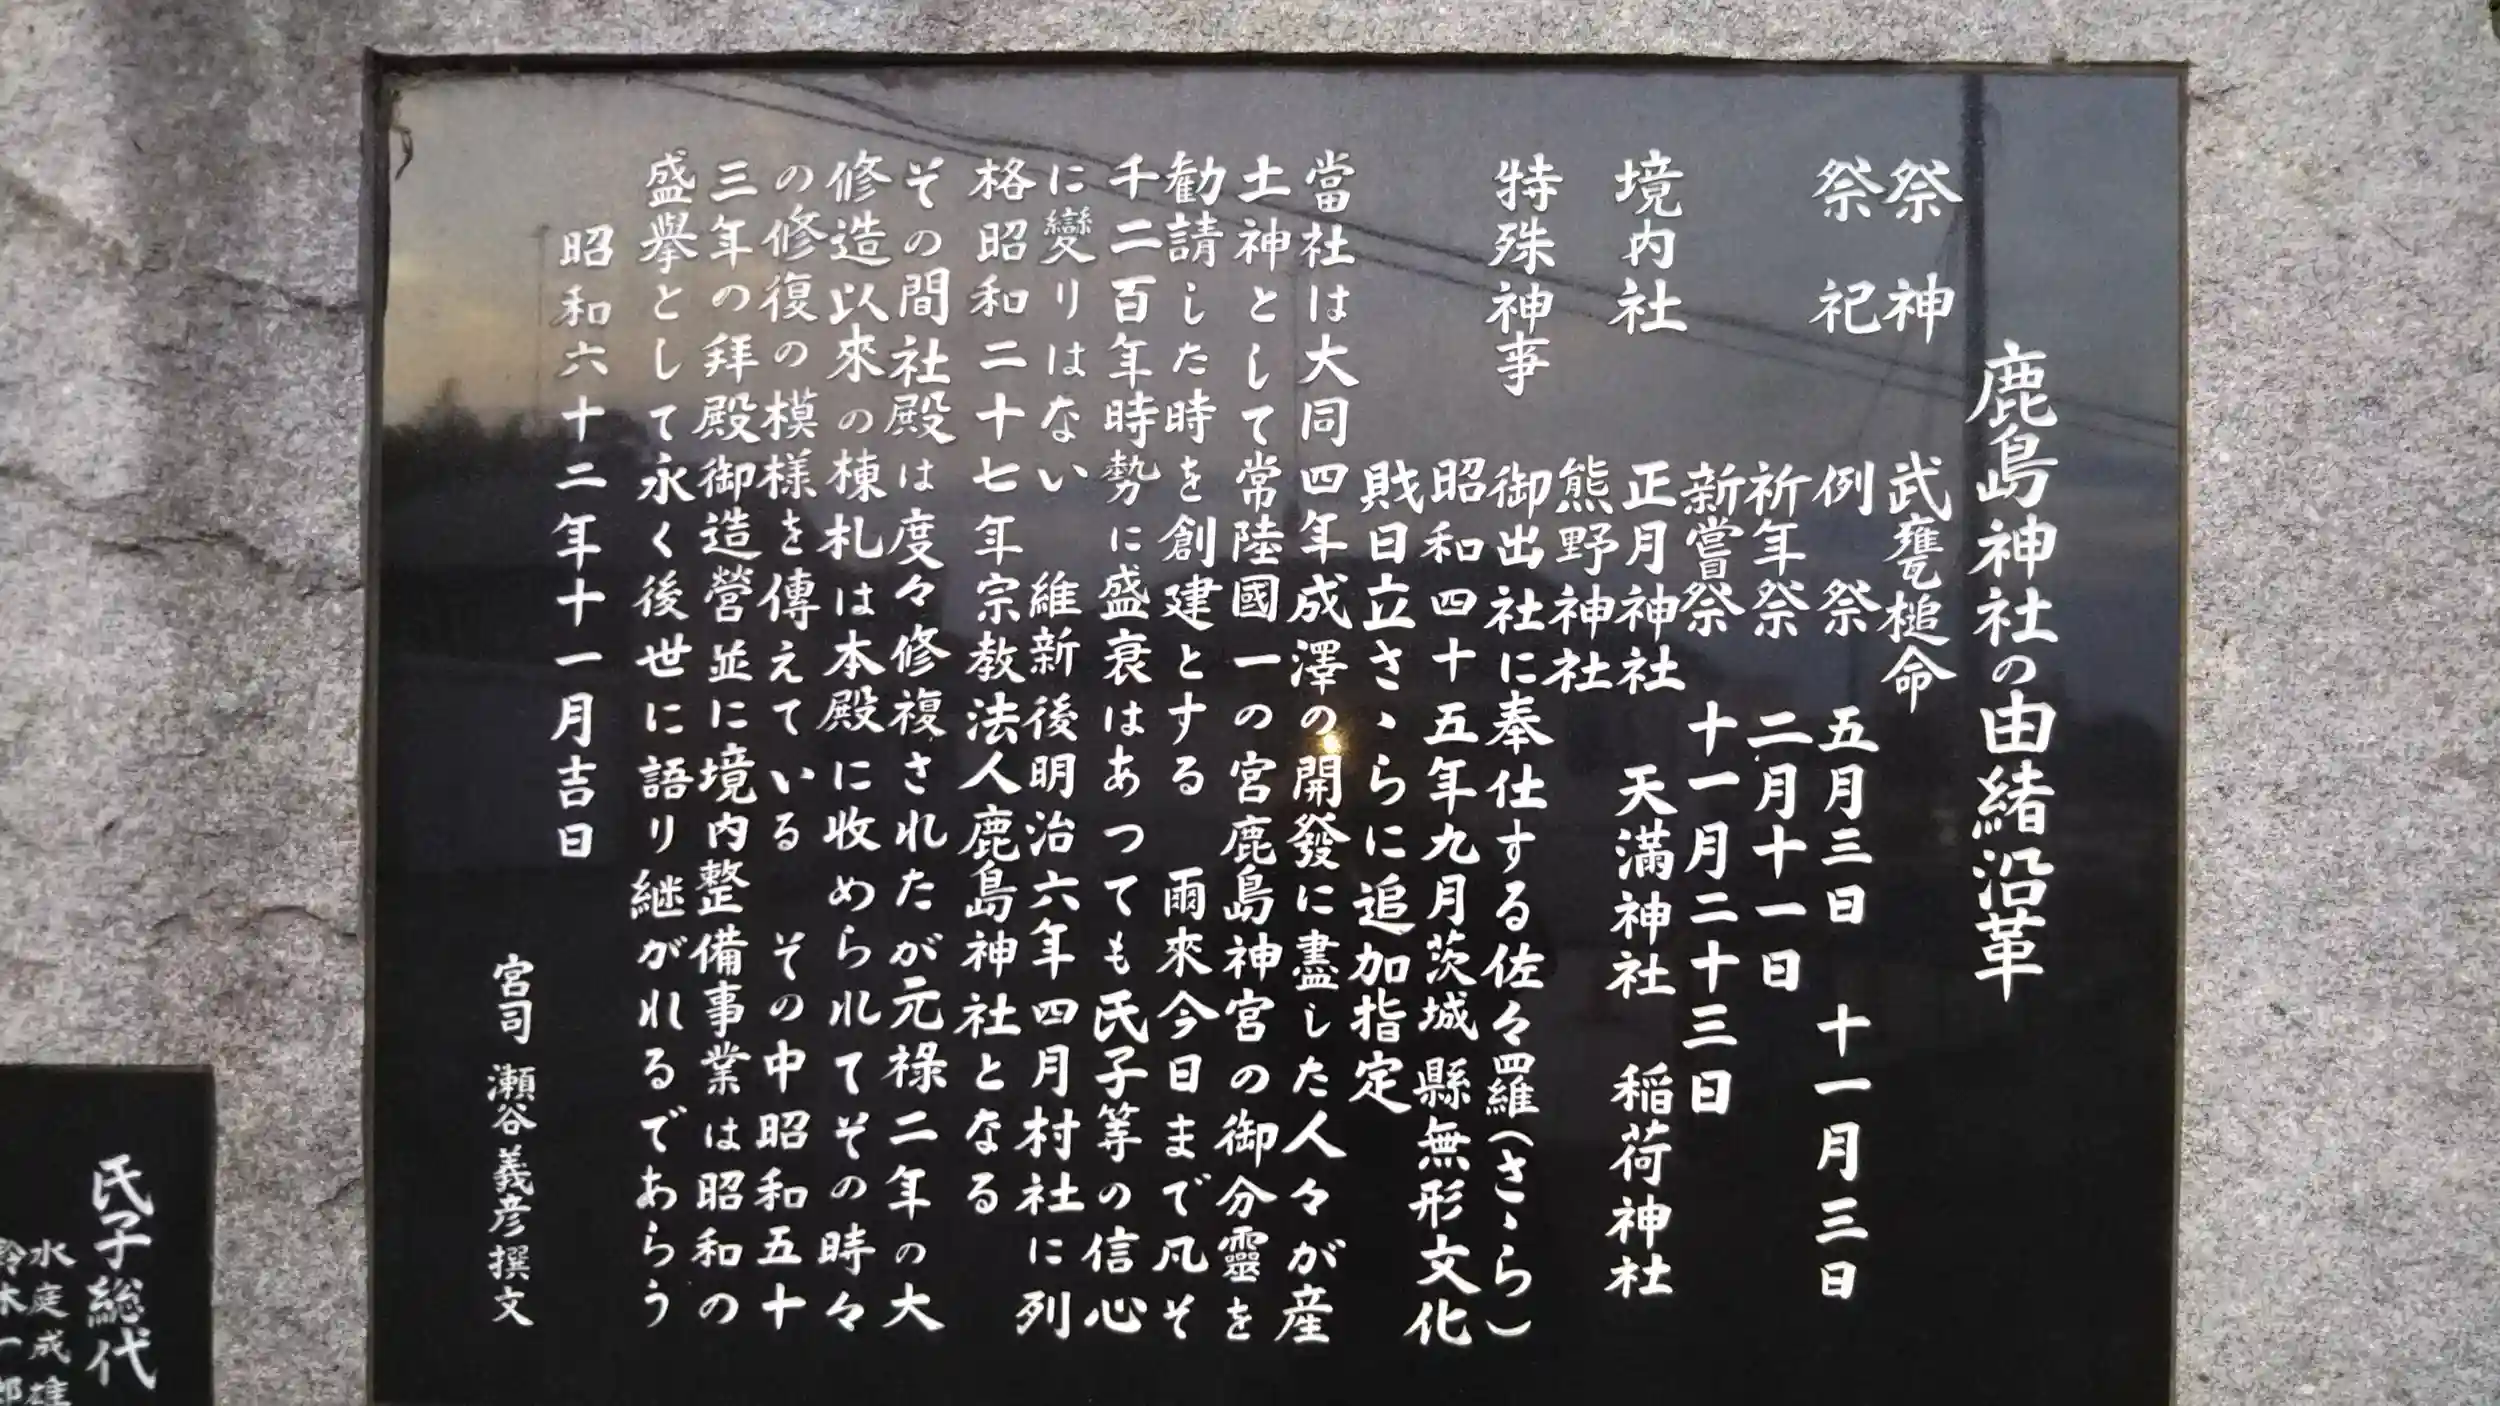 鹿島神社の由緒沿革
祭神 武甕槌命
祭祀 例祭 五月三日 十一月三日
祈年祭 二月十一日
新嘗祭 十一月二十三日
境内社 正月神社 天満神社 稲荷神社
熊野神社
特殊神事 御出社に奉仕する佐々羅(さゝら)
昭和四十五年九月茨城縣無形文化
財日立さゝらに追加指定
當社は大同四年成澤の開發に盡した人々が産
土神として常陸國一の宮鹿島神宮の御分靈を
勧請した時を創建とする 爾來今日まで凡そ
千二百年時勢に盛衰はあつても氏子等の信心
に變りはない 維新後明治六年四月村社に列
格昭和二十七年宗教法人鹿島神社となる
その間社殿は度々修複されたが元祿二年の大
修造以來の棟札は本殿に收められてその時々
の修復の模様を傳えている その中昭和五十
三年の拜殿御造營並に境内整備事業は昭和の
盛擧として永く後世に語り継がれるであらう
昭和六十二年十一月吉日
宮司 瀬谷義彦撰文
氏子総代
水庭成雄
鈴木一郎